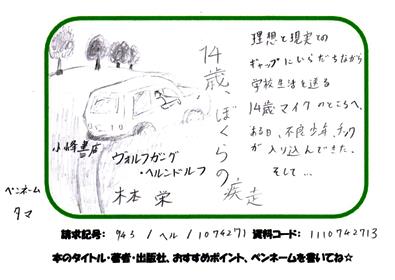 理想と現実との
ギャップにいらだちながら
学校生活を送る
14歳マイクのところへ、
ある日、不良少年、チック
が入り込んできた。
そして…
14歳、ぼくらの疾走
ヴォルフガング
・ヘルンドルフ
木本 栄
小峰書店
ペンネーム
タマ
請求記号: 943 / ヘル / 1074271 資料コード: 1110742713
本のタイトル・著者・出版社、おすすめポイント、ペンネームを書いてね☆